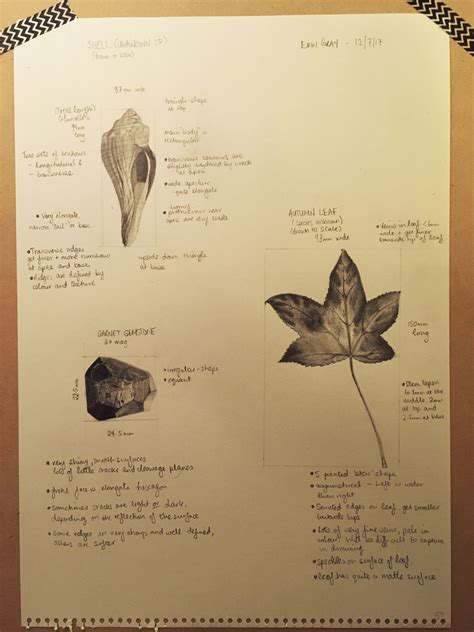 SHELL (UNKNOWN SP)
(drawn to scale)
ERIN GRAY - 12/7/17
37mm wide
(Total length)
94mm
long
triangle-shape
at top
'main body' is
rectangular
Two sets of contours
- longitudinal &
- transverse
• transverse contours are
slightly replaced by cracks
at apex
• wide aperture-
quite elongate
• Very elongate,
narrow 'tail' in base
protrusions near
apex are
• Transverse edges
get finer + more numerous
at apex and base
• Ridges are defined by
colour and texture
upside down triangle
at base
AUTUMN LEAF
(species unknown)
(drawn to scale)
wide
• Veins in leaf <1mm
wide + get finer
towards tip of leaf
150mm
long
• Stem tapers
to 1mm at the
middle, 2mm
at top and
2.5mm at base
GARNET GEMSTONE
2x mag
• irregular-shape
• equant
22.5
mm
24.5mm
• very shiny, smooth surfaces
lots of little cracks and cleavage planes
• front face is elongate hexagon
• sometimes cracks are light or dark,
depending on the reflection of the surface
• Some edges are very sharp and well defined,
others are softer
• 5 pointed 'star' shape
• asymmetrical - left is wider
than right
• Serrated edges on leaf, get smaller
towards tips
• lots of very fine veins, pale in
colour. Will be difficult to capture
in drawing
• speckles on surface of leaf
• leaf has quite a matte surface